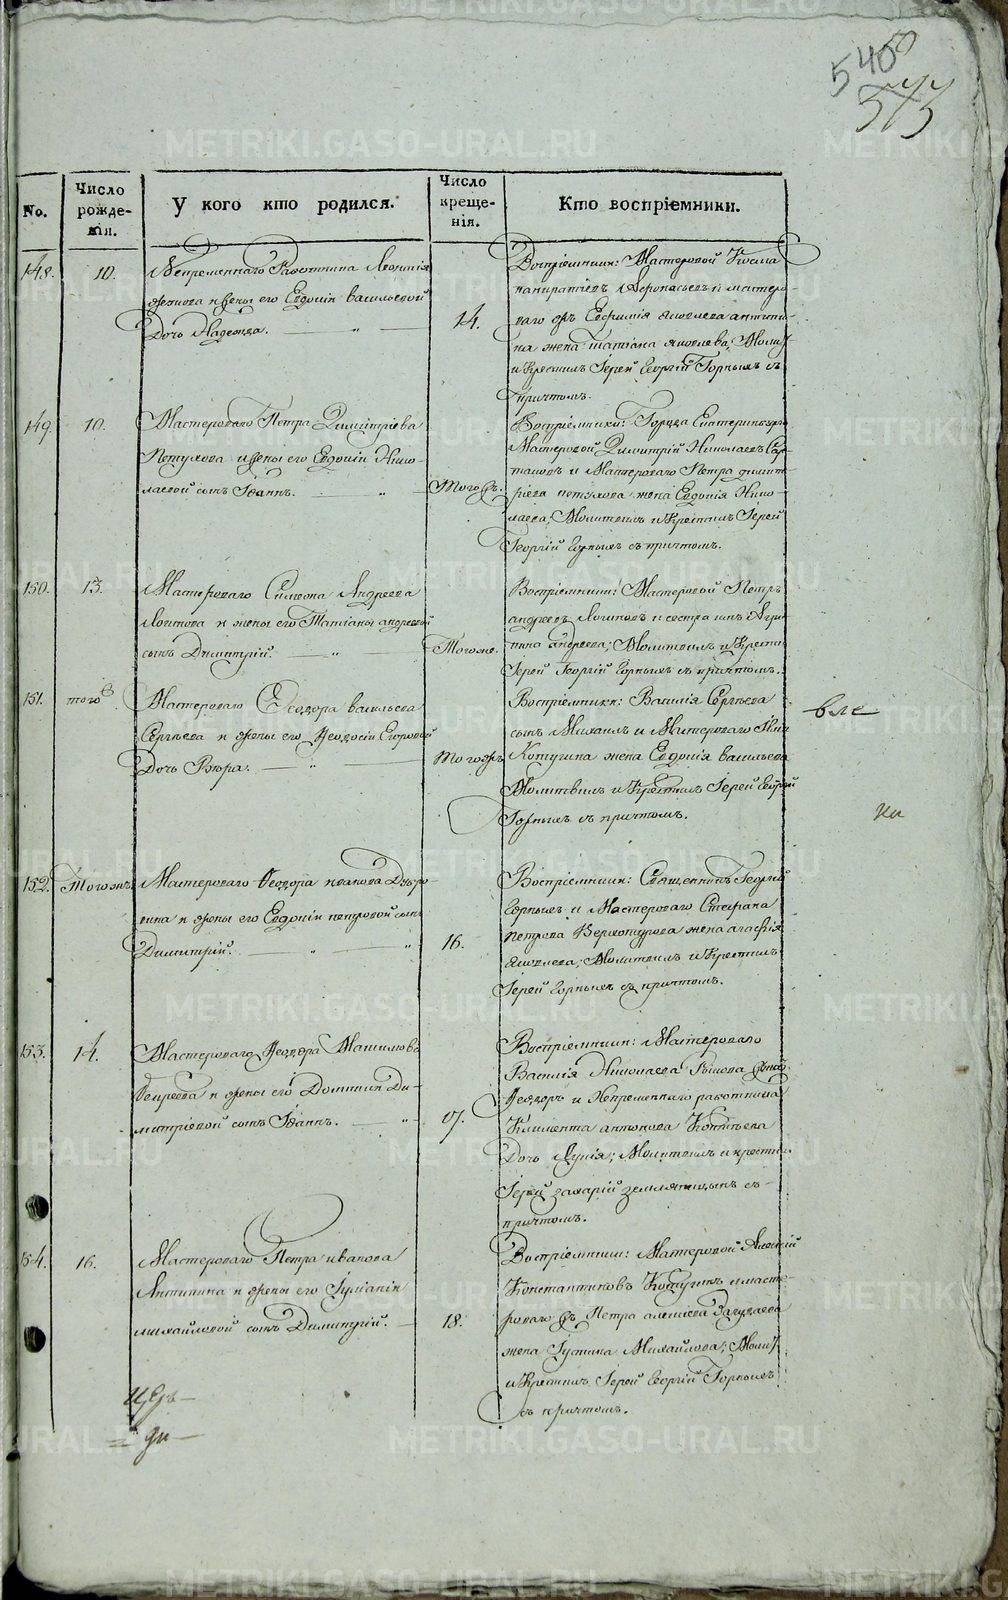 5408
573
No.
Число рожде-нія.
У кого кто родился.
Число креще-нія.
Кто воспріемники.
148.
10.
Непременнаго Работника Леонтія
жены его Евдокіи Васильевой
Дочь Надежда.
14.
Воспріемники: Мастеровой Косма
Панкратіевъ Афонасьевъ и мастеро-
ваго Евфимія Яковлева Антипи-
на жена Татіана Яковлева; Молит.
и Крестилъ Іерей Георгій Горныхъ съ
причтомъ.
149.
10.
Мастероваго Петра Димитріева
Петухова и жены его Евдокіи Нико-
лаевой сынъ Іоаннъ.
Тогожъ.
Воспріемники: Города Екатеринбурга
Мастеровой Димитрій Николаевъ
и Мастероваго Петра Димит-
ріева Петухова жена Евдокія Нико-
лаева; Молитвилъ и Крестилъ Іерей
Георгій Горныхъ съ причтомъ.
150.
13.
Мастероваго Симеона Андреева
Логинова и жены его Татіаны Андреевой
сынъ Димитрій.
Тогоже.
Воспріемники: Мастеровой Петръ
Андреевъ Логиновъ и сестра ихъ Агри-
пина Андреева; Молитвилъ и Крести.
Іерей Георгій Горныхъ съ причтомъ.
151.
того
Мастероваго Феодора Васильева
Сергѣева и жены его Феодосіи Егоровой
Дочь Вѣра.
Тогожъ
Воспріемники: Василія Сергѣева
сынъ Михаилъ и Мастероваго
Котугина жена Евдокія Васильева
Молитвилъ и Крестилъ Іерей Георгій
Горныхъ съ причтомъ.
152.
Тогожъ
Мастероваго Феодора Иванова
и жены его Евдокіи Петровой сынъ
Димитрій.
16.
Воспріемники: Священникъ Георгій
Горныхъ и Мастероваго Стефана
Петрова Верхотурова жена Агафія
Яковлева; Молитвилъ и Крестилъ
Іерей Горныхъ съ причтомъ.
153.
14.
Мастероваго Феодора
и жены его Домники Ди-
митріевой сынъ Іоаннъ.
17.
Воспріемники: Мастероваго
Василія Николаева Быкова сынъ
Феодоръ и Непременнаго работника
Климента Антонова Копытѣева
Дочь Лукія; Молитвилъ и крестил
Іерей Захарій Земляницынъ съ
причтомъ.
154.
16.
Мастероваго Петра Иванова
Антипина и жены его Іуліаніи
Михайловой сынъ Димитрій.
18.
Воспріемники: Мастеровой Алексій
Константиновъ Котугинъ и масте-
роваго Петра Алексіева
жена Іустина Михайлова; Молит.
и Крестилъ Іерей Георгій Горныхъ
съ причтомъ.
METRIKI.GASO-URAL.RU